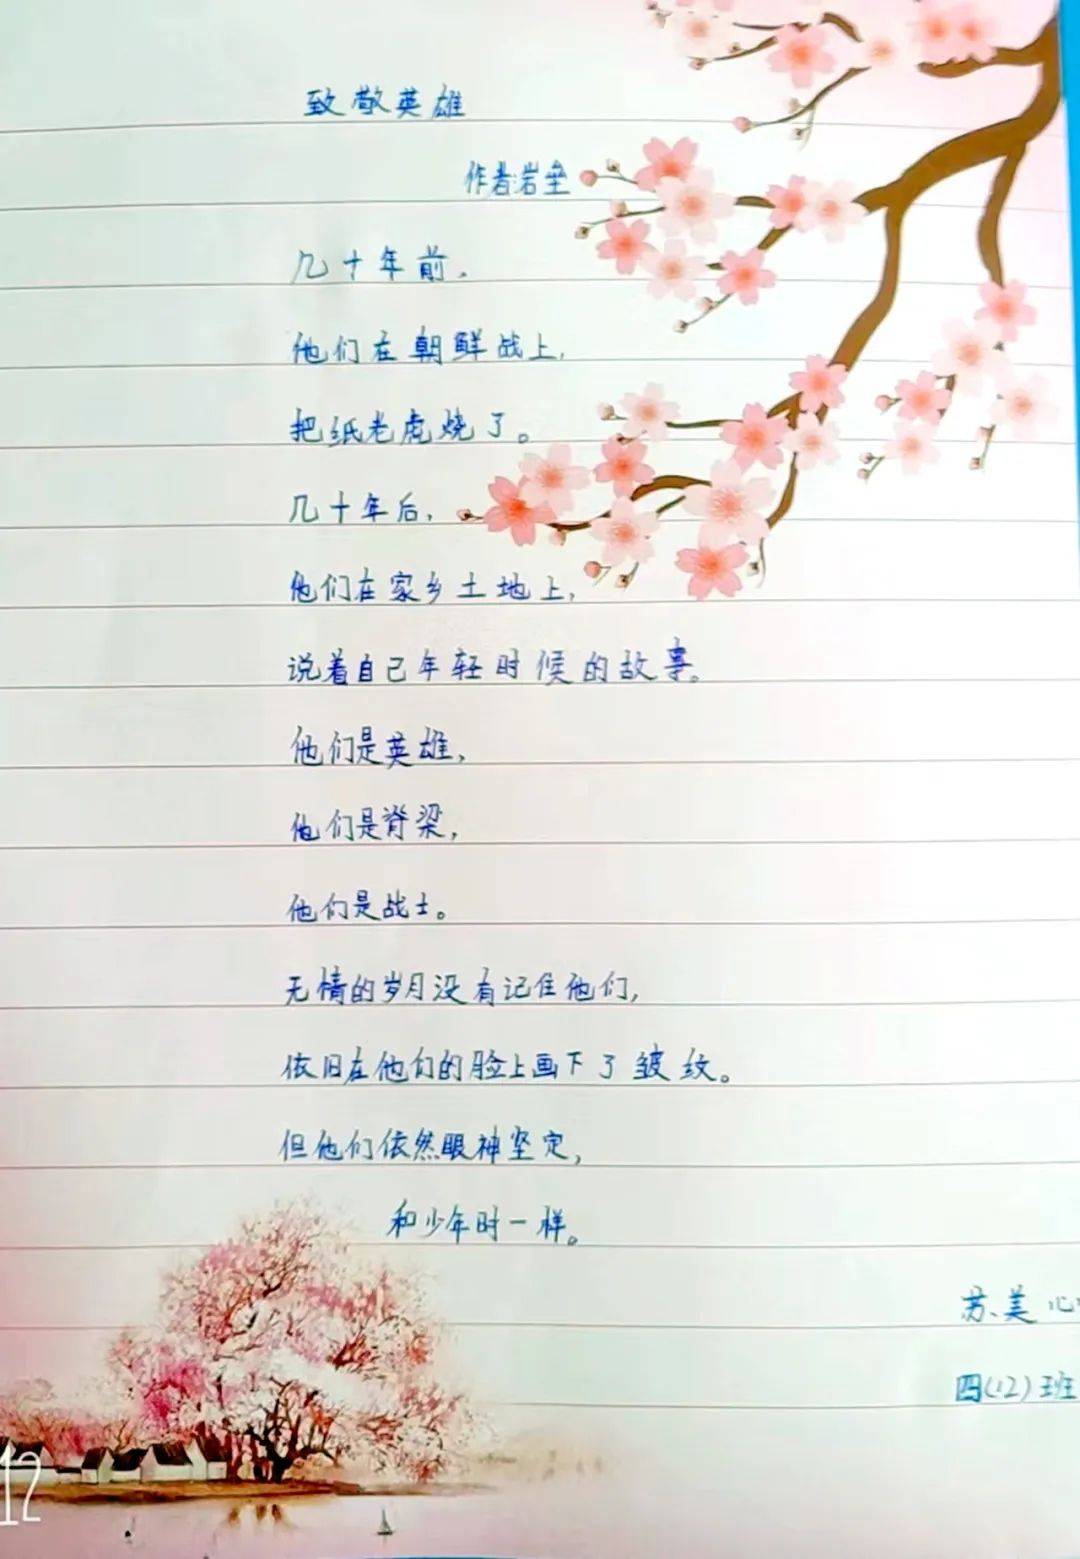 致敬英雄
作者:岩垒
几十年前,
他们在朝鲜战上,
把纸老虎烧了。
几十年后,
他们在家乡土地上,
说着自己年轻时候的故事。
他们是英雄,
他们是脊梁,
他们是战士。
无情的岁月没有记住他们,
依旧在他们的脸上画下了皱纹。
但他们依然眼神坚定,
和少年时一样。
苏美心
四(12)班
12